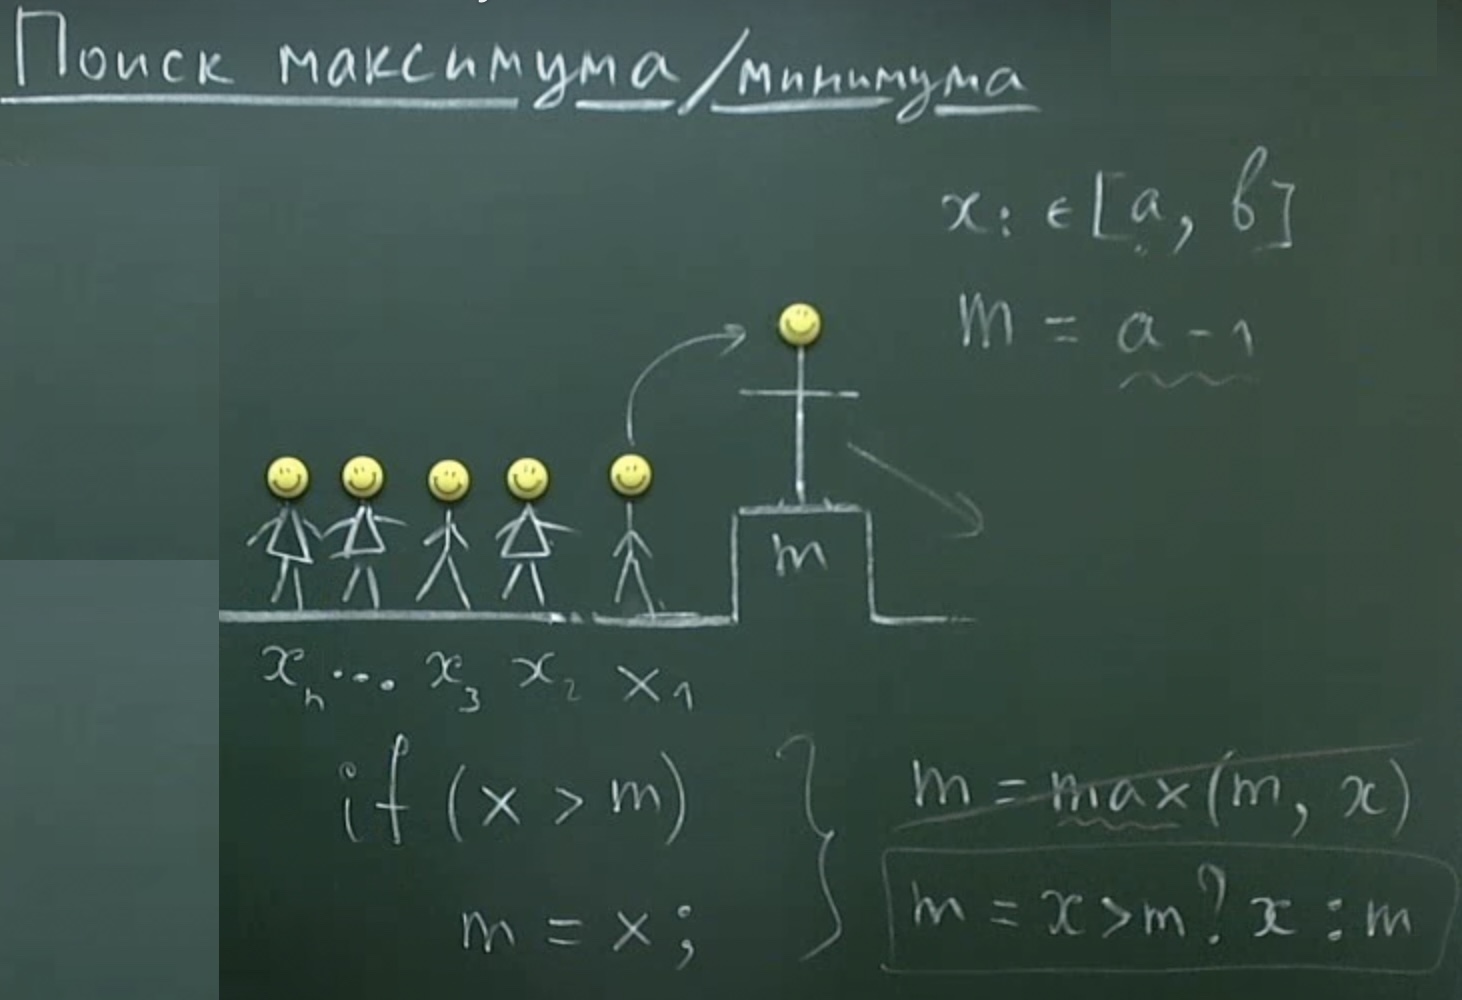 Поиск максимума/минимума
xᵢ ∈ [a, b]
m = a - 1
m
xₙ ... x₃ x₂ x₁
if (x > m)
m = x;
m = max(m, x)
m = x > m ? x : m